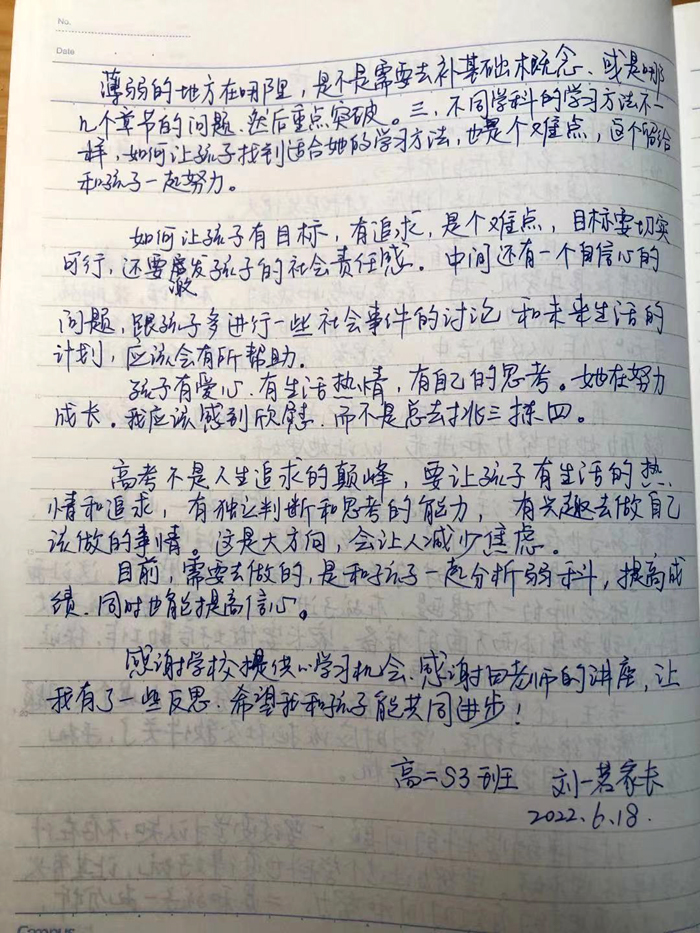 No.
Date
薄弱的地方在哪里，是不是需要去补基础概念、或是哪
几个章节的问题、然后重点突破。三、不同学科的学习方法不一
样，如何让孩子找到适合她的学习方法，也是个难点，这个留给
和孩子一起努力。
如何让孩子有目标，有追求，是个难点，目标要切实
可行，还要激发孩子的社会责任感。中间还有一个自信心的
问题，跟孩子多进行一些社会事件的讨论 和未来生活的
计划，应该会有所帮助。
孩子有爱心、有生活热情，有自己的思考。她在努力
成长。我应该感到欣慰、而不是总去挑三拣四。
高考不是人生追求的巅峰，要让孩子有生活的热
情和追求，有独立判断和思考的能力，有兴趣去做自己
该做的事情。这是大方向，会让人减少焦虑。
目前，需要去做的，是和孩子一起分析弱科，提高成
绩、同时也能提高信心。
感谢学校提供以学习机会、感谢田老师的讲座，让
我有了一些反思、希望我和孩子能共同进步！
高二S3班 刘一茗家长
2022.6.18.
Campus